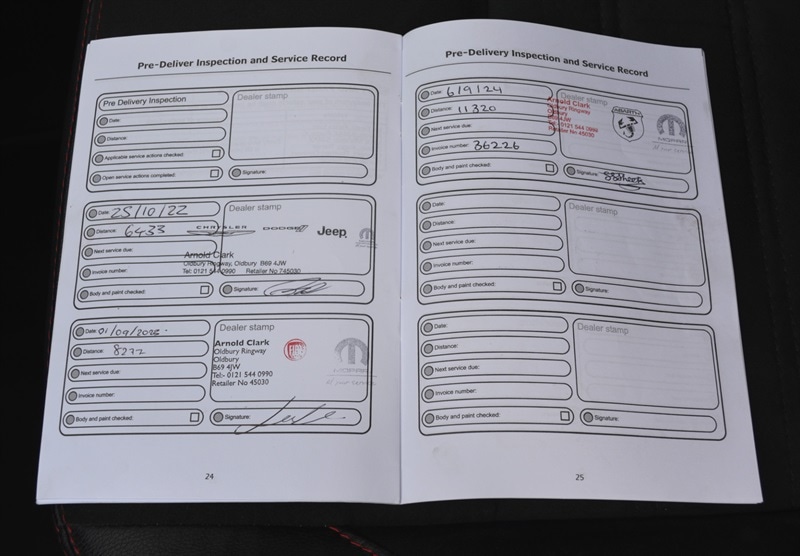 Pre-Deliver Inspection and Service Record
Pre Delivery Inspection
Dealer stamp
Date:
Distance:
Applicable service actions checked:
Open service actions completed:
Signature:
Date: 25/10/22
Dealer stamp
Distance: 6433
CHRYSLER DODGE Jeep
Next service due:
Arnold Clark
Oldbury Ringway, Oldbury B69 4JW
Invoice number:
Tel: 0121 544 0990 Retailer No 745030
Body and paint checked:
Signature:
Date: 01/09/2023.
Dealer stamp
Distance: 8272
Arnold Clark
Oldbury Ringway
Oldbury
B69 4JW
Tel:- 0121 544 0990
Retailer No 45030
FIAT
MOPAR
Next service due:
Invoice number:
Body and paint checked:
Signature:
24
Pre-Delivery Inspection and Service Record
Date: 6/9/24
Dealer stamp
Distance: 11320
Arnold Clark
Oldbury Ringway
Oldbury
B69 4JW
Tel:- 0121 544 0990
Retailer No 45030
ABARTH
MOPAR
Next service due:
Invoice number: 36226
Body and paint checked:
Signature:
Date:
Dealer stamp
Distance:
Next service due:
Invoice number:
Body and paint checked:
Signature:
Date:
Dealer stamp
Distance:
Next service due:
Invoice number:
Body and paint checked:
Signature:
25